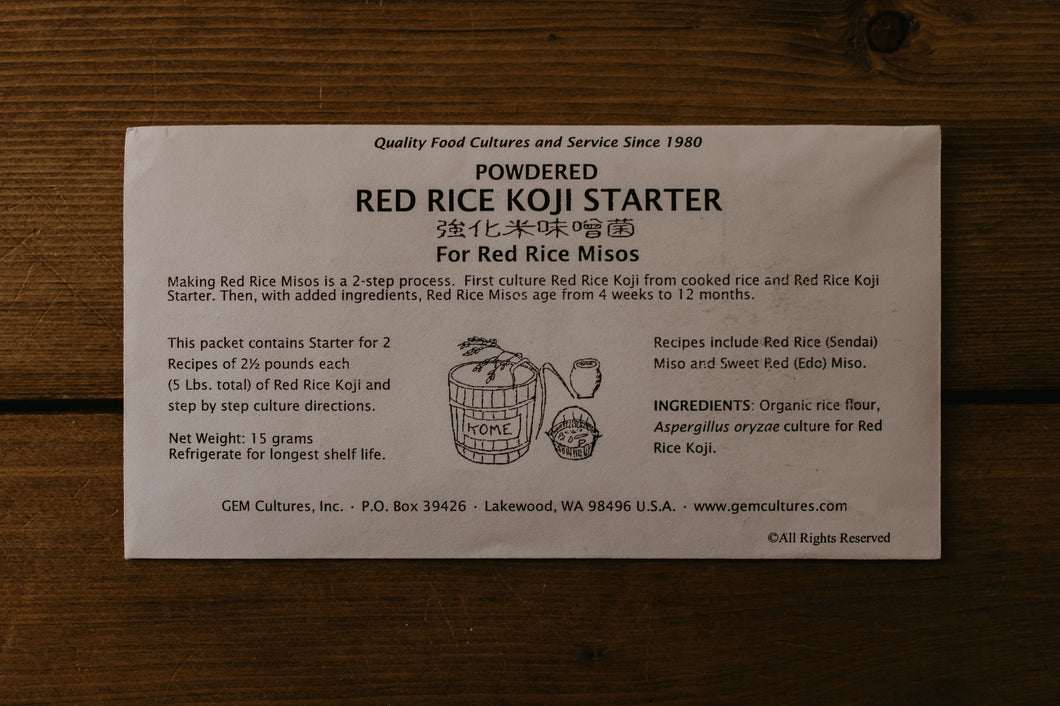 Quality Food Cultures and Service Since 1980
POWDERED
RED RICE KOJI STARTER
強化米味噌菌
For Red Rice Misos
Making Red Rice Misos is a 2-step process. First culture Red Rice Koji from cooked rice and Red Rice Koji
Starter. Then, with added ingredients, Red Rice Misos age from 4 weeks to 12 months.
This packet contains Starter for 2
Recipes of 2½ pounds each
(5 Lbs. total) of Red Rice Koji and
step by step culture directions.
Net Weight: 15 grams
Refrigerate for longest shelf life.
KOME
Recipes include Red Rice (Sendai)
Miso and Sweet Red (Edo) Miso.
INGREDIENTS: Organic rice flour,
Aspergillus oryzae culture for Red
Rice Koji.
GEM Cultures, Inc. · P.O. Box 39426 · Lakewood, WA 98496 U.S.A. · www.gemcultures.com
©All Rights Reserved